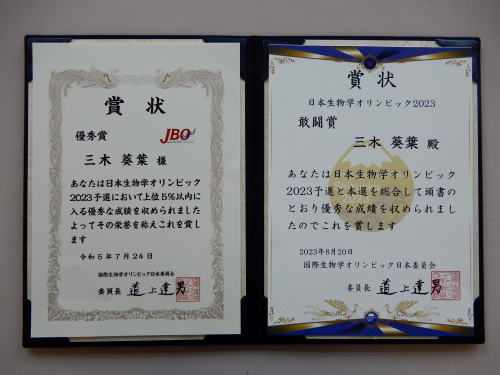 賞状
優秀賞
JBO
三木 葵葉 様
あなたは日本生物学オリンピック
2023予選において上位5%以内に
入る優秀な成績を収められました
よってその栄誉を称えこれを賞し
ます
令和5年7月24日
国際生物学オリンピック日本委員会
委員長 道上達男
賞状
日本生物学オリンピック2023
敢闘賞
三木 葵葉 殿
あなたは日本生物学オリンピック
2023予選と本選を総合して頭書の
とおり優秀な成績を収められまし
たのでこれを賞します
2023年8月20日
国際生物学オリンピック日本委員会
委員長 道上達男